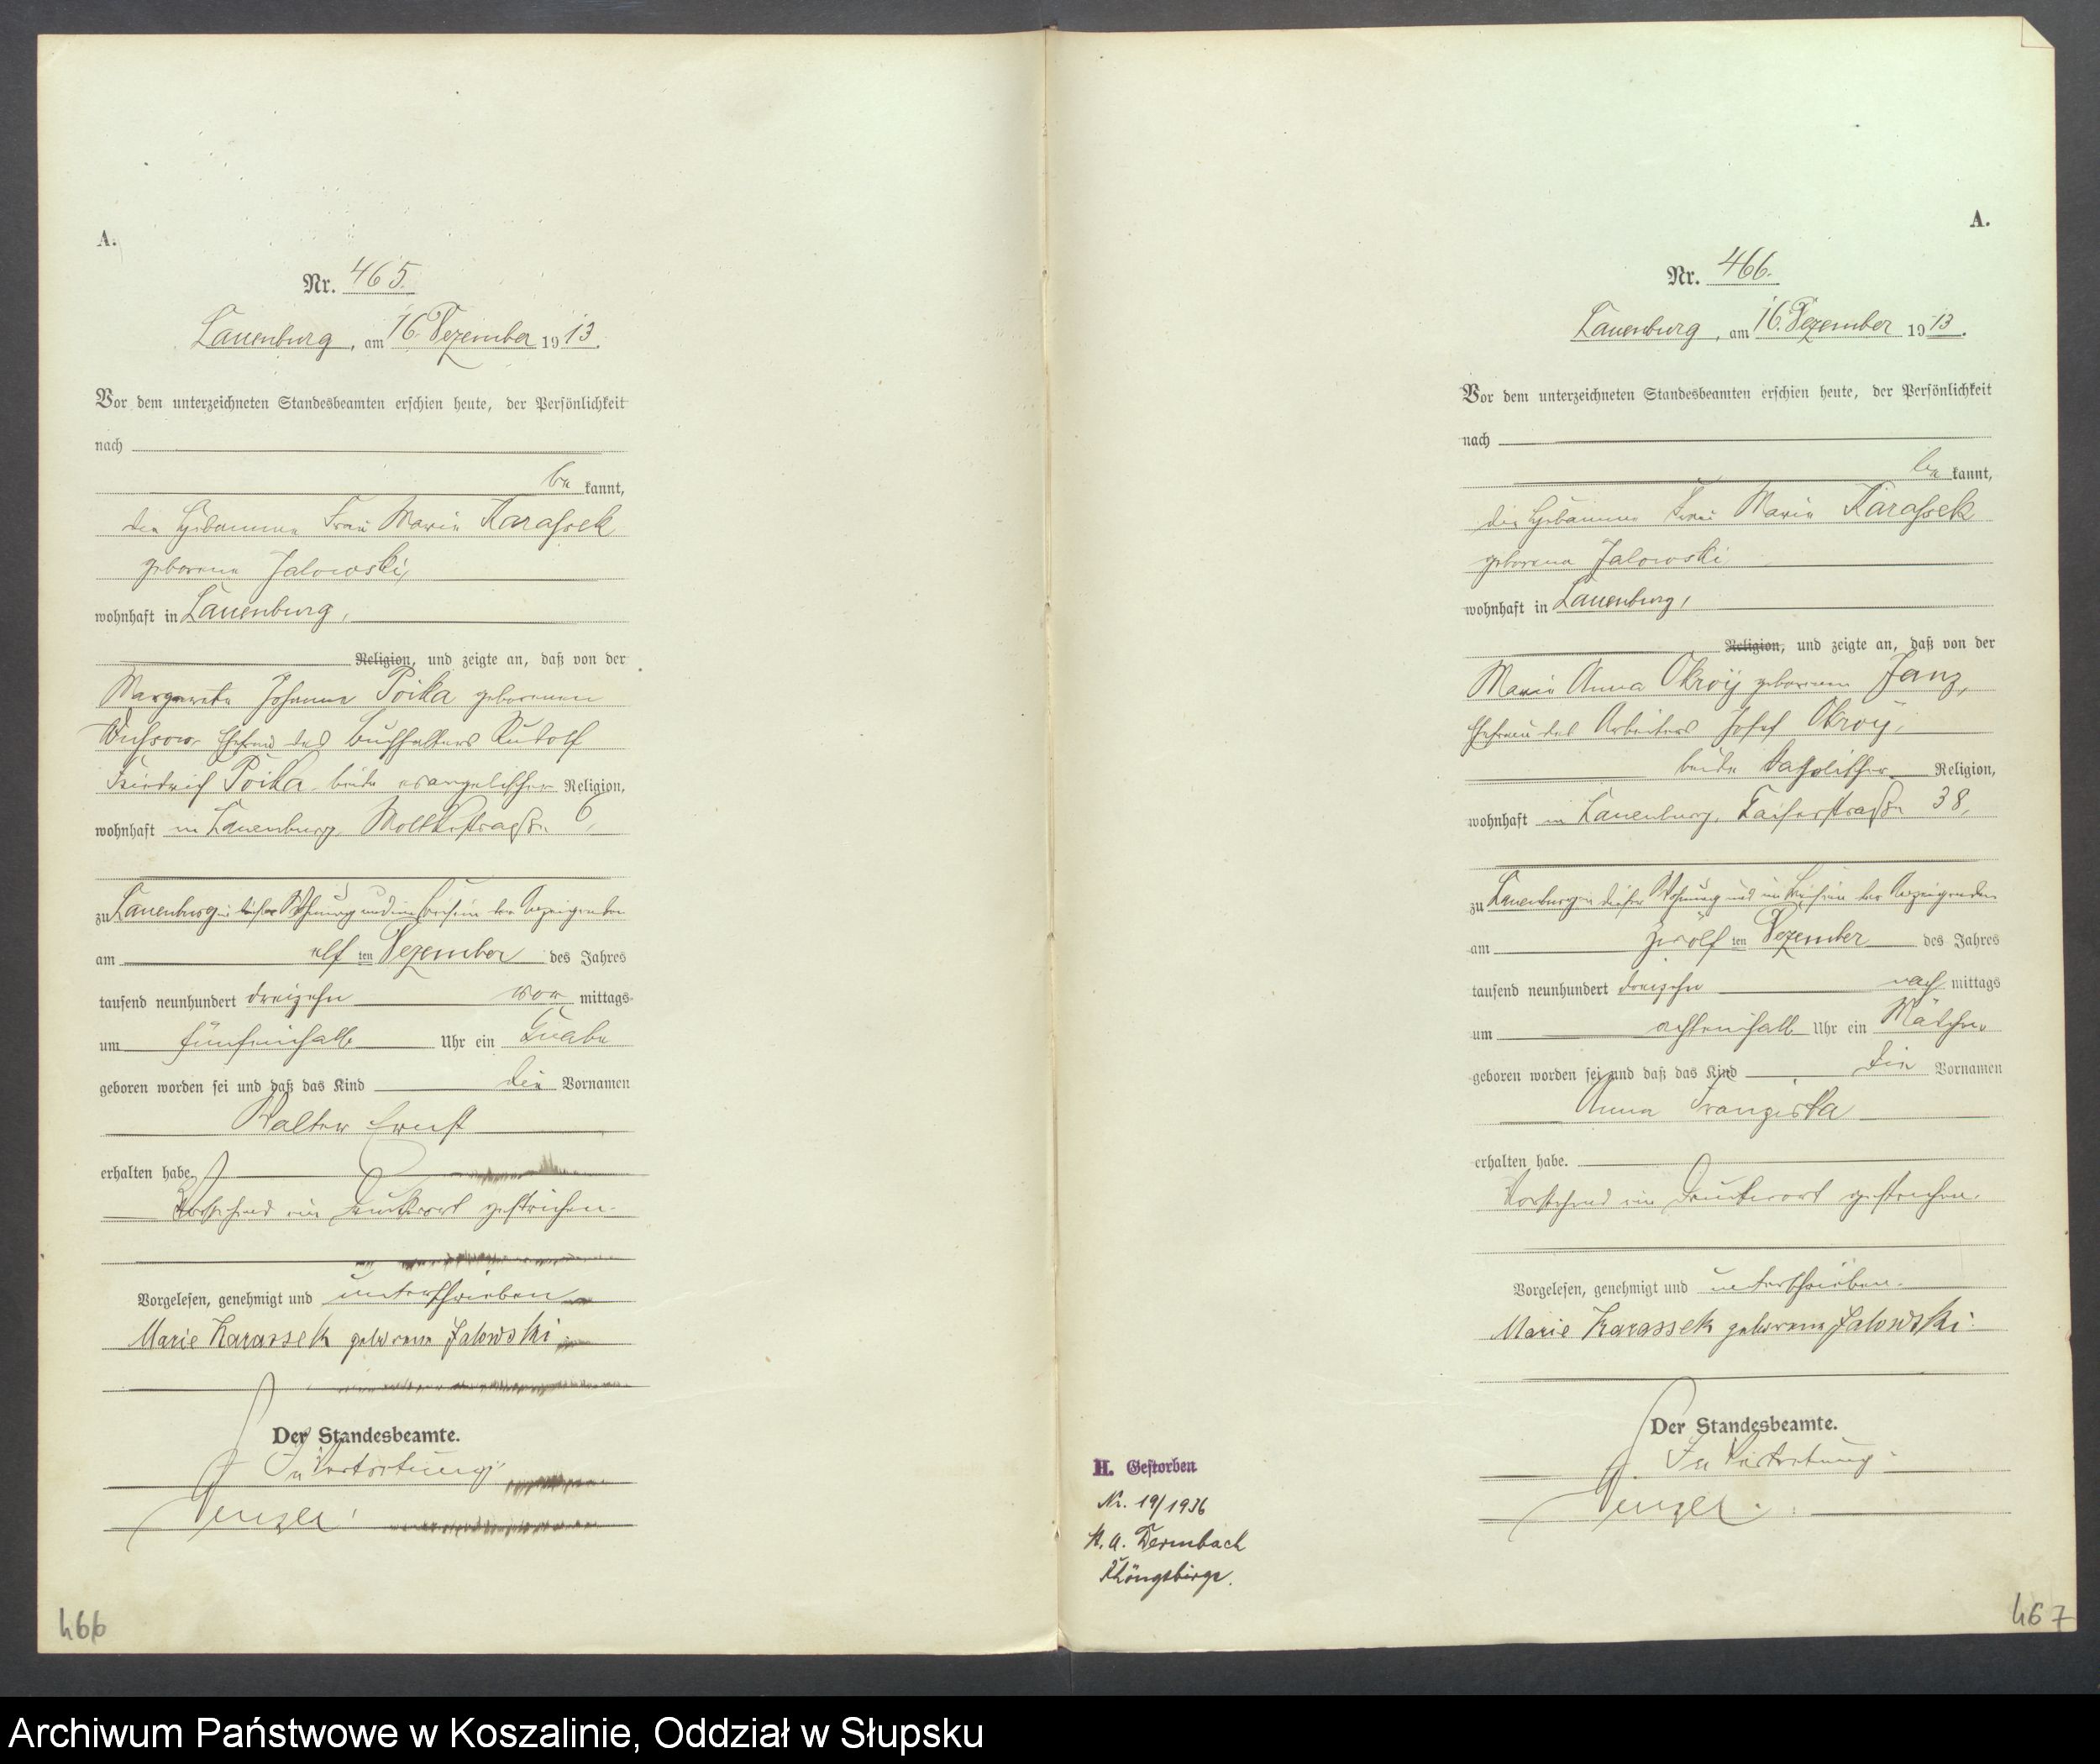 A.
Nr. 465.
Lauenburg, am 16. Dezember 1913.
Vor dem unterzeichneten Standesbeamten erschien heute, der Persönlichkeit
nach
be kannt,
die Hebamme Frau Marie Karassek
geborene Jalowski,
wohnhaft in Lauenburg,
Religion, und zeigte an, daß von der
Margarete Johanna Poika geborenen
Wussow, Ehefrau des Buchhalters Rudolf
Friedrich Poika, beide evangelischer Religion,
wohnhaft in Lauenburg, Moltkestraße 6,
zu Lauenburg in dieser Wohnung und im Beisein der Anzeigenden
am elf ten Dezember des Jahres
tausend neunhundert dreizehn vor mittags
um fünfeinhalb Uhr ein Knabe
geboren worden sei und daß das Kind die Vornamen
Walter Ernst
erhalten habe.
Vorstehend ein Druckwort gestrichen.
Vorgelesen, genehmigt und unterschrieben
Marie Karassek geborene Jalowski.
Der Standesbeamte.
In Vertretung.
466
A.
Nr. 466.
Lauenburg, am 16. Dezember 1913.
Vor dem unterzeichneten Standesbeamten erschien heute, der Persönlichkeit
nach
be kannt,
die Hebamme Frau Marie Karassek
geborene Jalowski
wohnhaft in Lauenburg,
Religion, und zeigte an, daß von der
Maria Anna Okroy geborenen Janz,
Ehefrau des Arbeiters Josef Okroy,
beide katholischer Religion,
wohnhaft in Lauenburg, Kaiserstraße 38,
zu Lauenburg in dieser Wohnung und im Beisein der Anzeigenden
am zwölf ten Dezember des Jahres
tausend neunhundert dreizehn nach mittags
um achteinhalb Uhr ein Mädchen
geboren worden sei und daß das Kind die Vornamen
Anna Franziska
erhalten habe.
Vorstehend ein Druckwort gestrichen.
Vorgelesen, genehmigt und unterschrieben.
Marie Karassek geborene Jalowski.
Der Standesbeamte.
In Vertretung.
H. Gestorben
Nr. 19/1936
St. A. Dermbach
467
Archiwum Państwowe w Koszalinie, Oddział w Słupsku